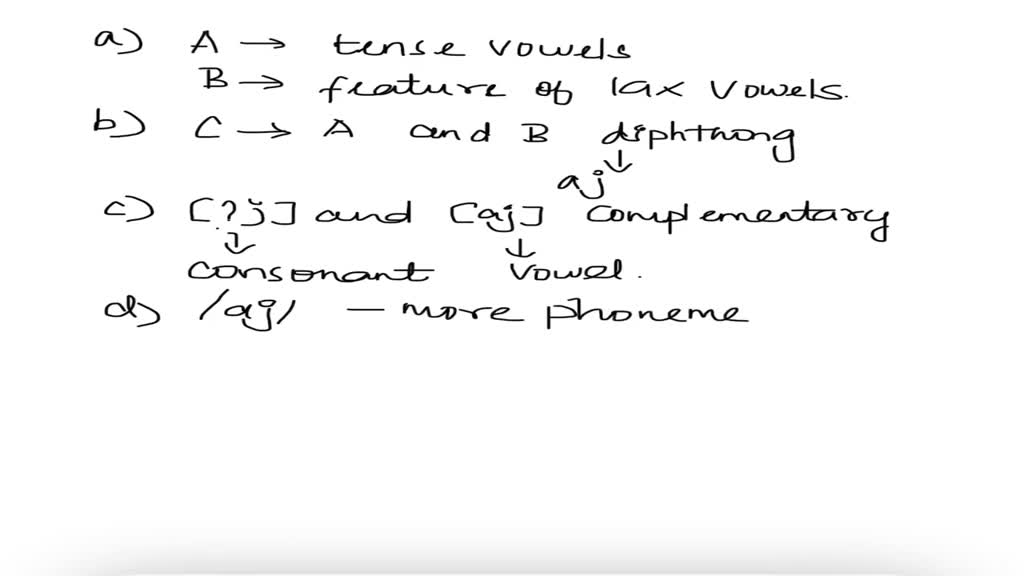 a) A → tense vowels
B → feature of lax vowels.
b) C → A and B diphthong
↓
aj
c) [?j] and [aj] complementary
↓ ↓
consonant vowel.
d) /aj/ — more phoneme